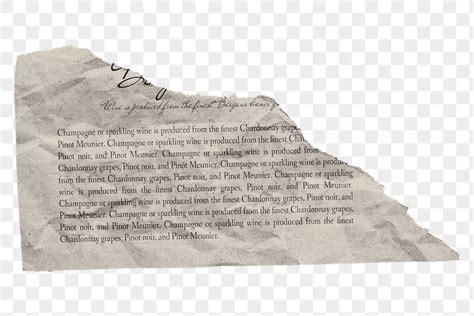 Wine is produced from the finest
Champagne or sparkling wine is produced from the finest Chardonnay grapes,
Pinot Meunier. Champagne or sparkling wine is produced from the finest
Pinot noir, and Pinot Meunier. Champagne or sparkling wine is produced
from the finest Chardonnay grapes, Pinot noir, and Pinot Meunier.
Champagne or sparkling wine is produced from the finest Chardonnay grapes,
Pinot noir, and Pinot Meunier. Champagne or sparkling wine is produced from
the finest Chardonnay grapes, Pinot noir, and Pinot Meunier. Champagne or
sparkling wine is produced from the finest Chardonnay grapes, Pinot noir, and
Pinot Meunier. Champagne or sparkling wine is produced from the finest
Chardonnay grapes, Pinot noir, and Pinot Meunier.